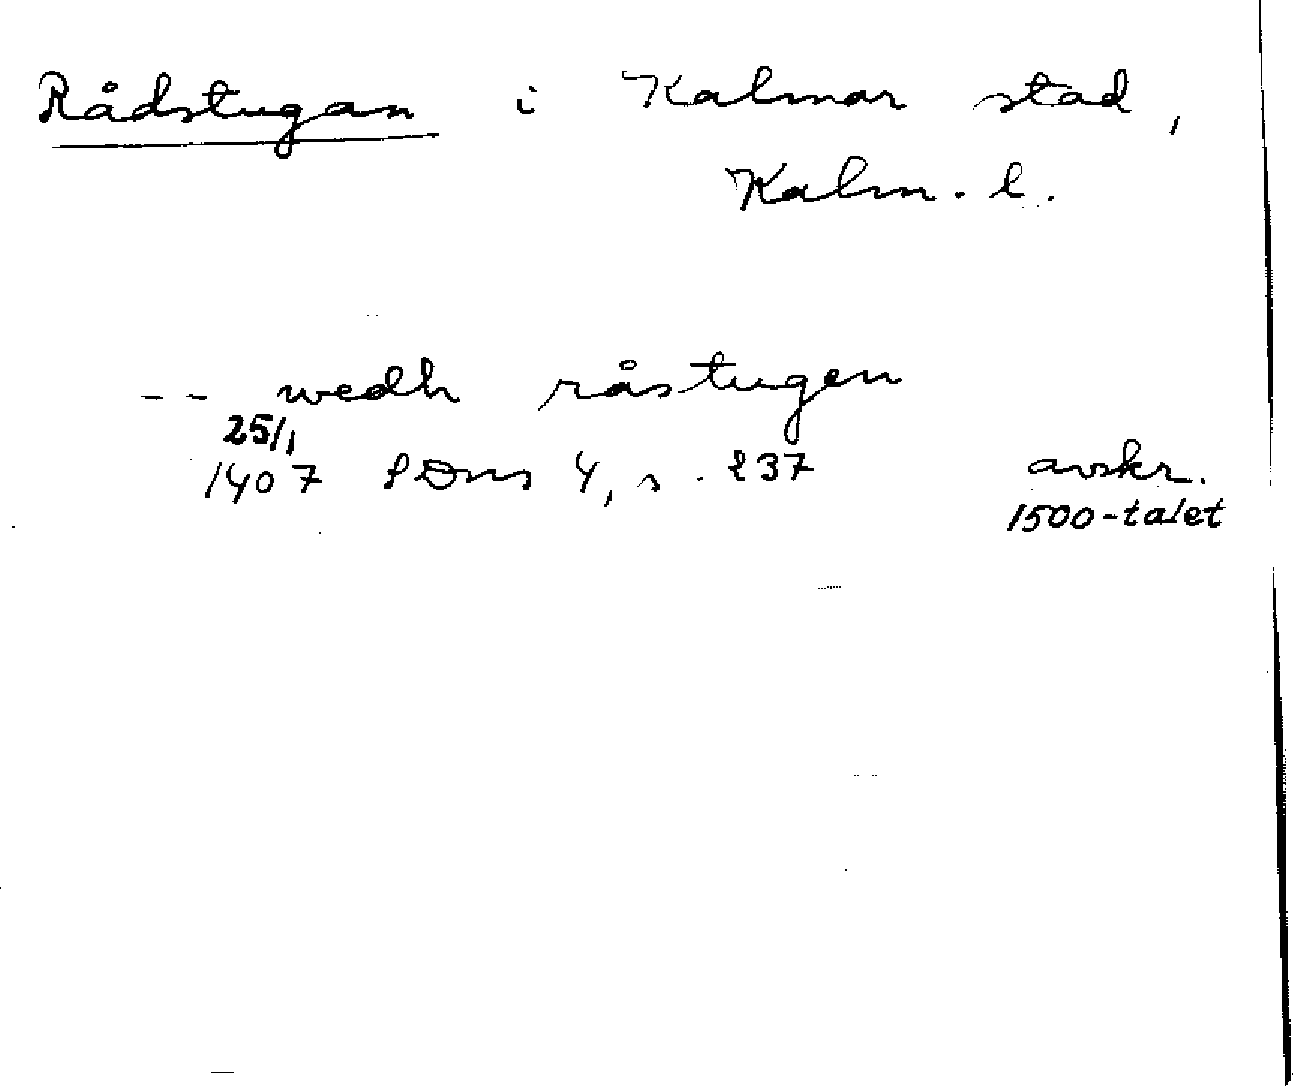 Rådstugan i Kalmar stad,
Kalm. l.
-- wedh råstugen
25/1
1407 SDns 4, s. 237 avskr.
1500-talet